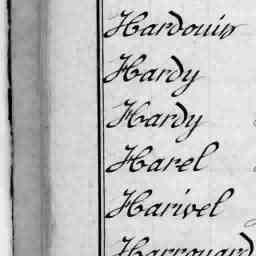 Hardouin
Hardy
Hardy
Harel
Harivel
Harrouard